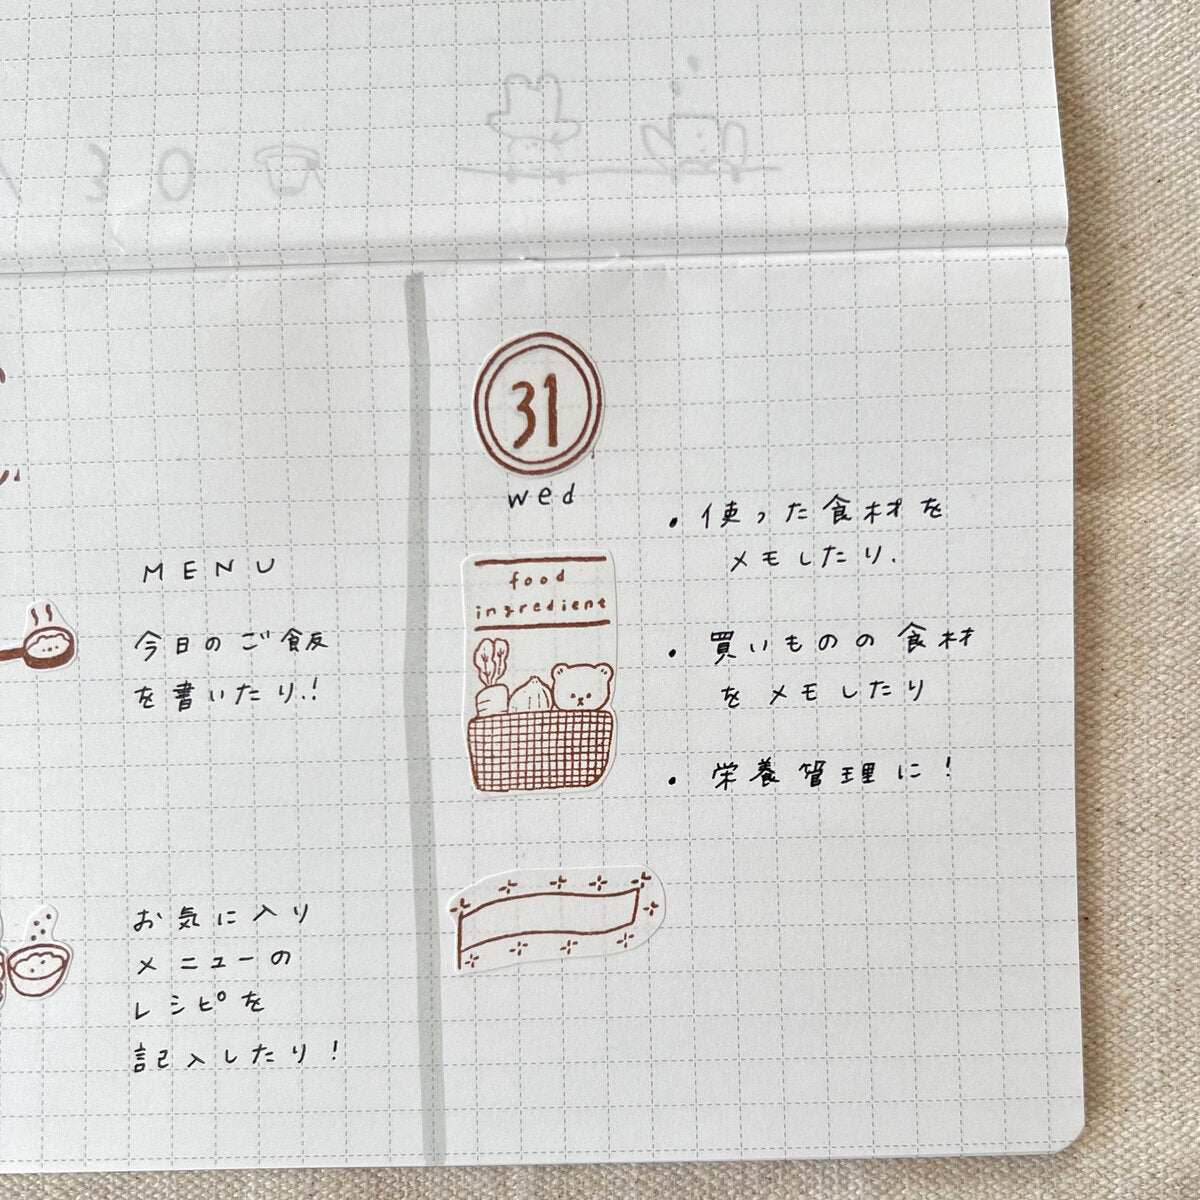 30
MENU
今日のご飯
を書いたり.!
お気に入り
メニューの
レシピを
記入したり!
31
wed
food
ingredient
• 使った食材を
メモしたり.
• 買いものの食材
をメモしたり
• 栄養管理に!